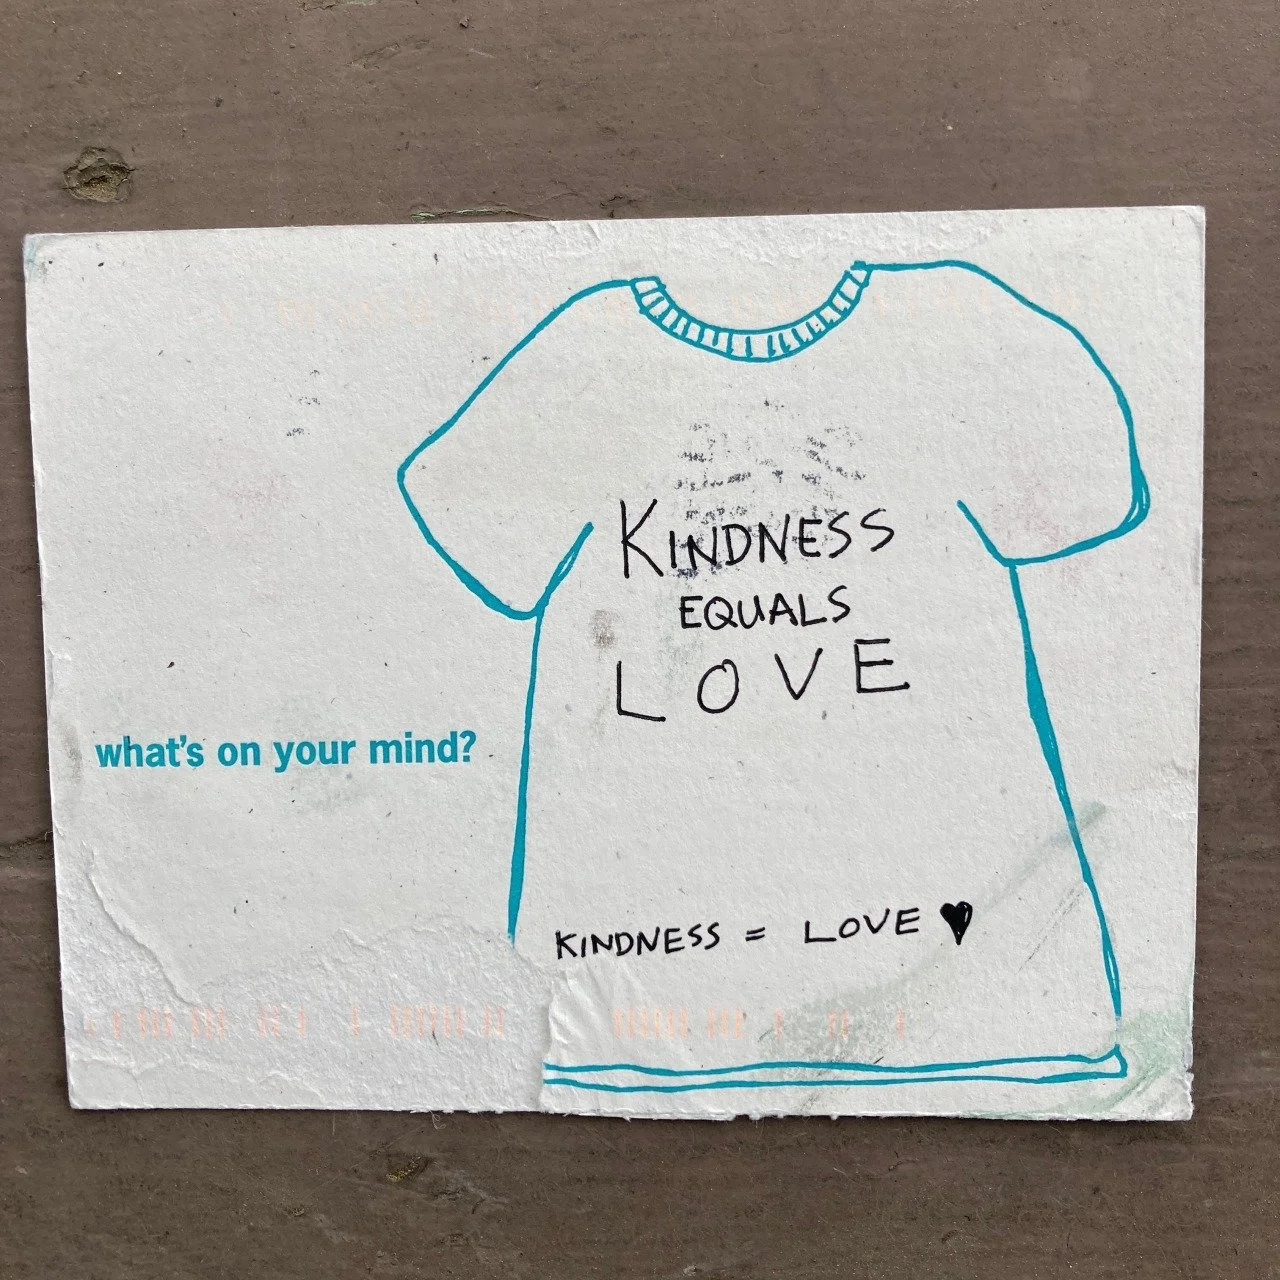 KINDNESS
EQUALS
LOVE
what's on your mind?
KINDNESS = LOVE ♥